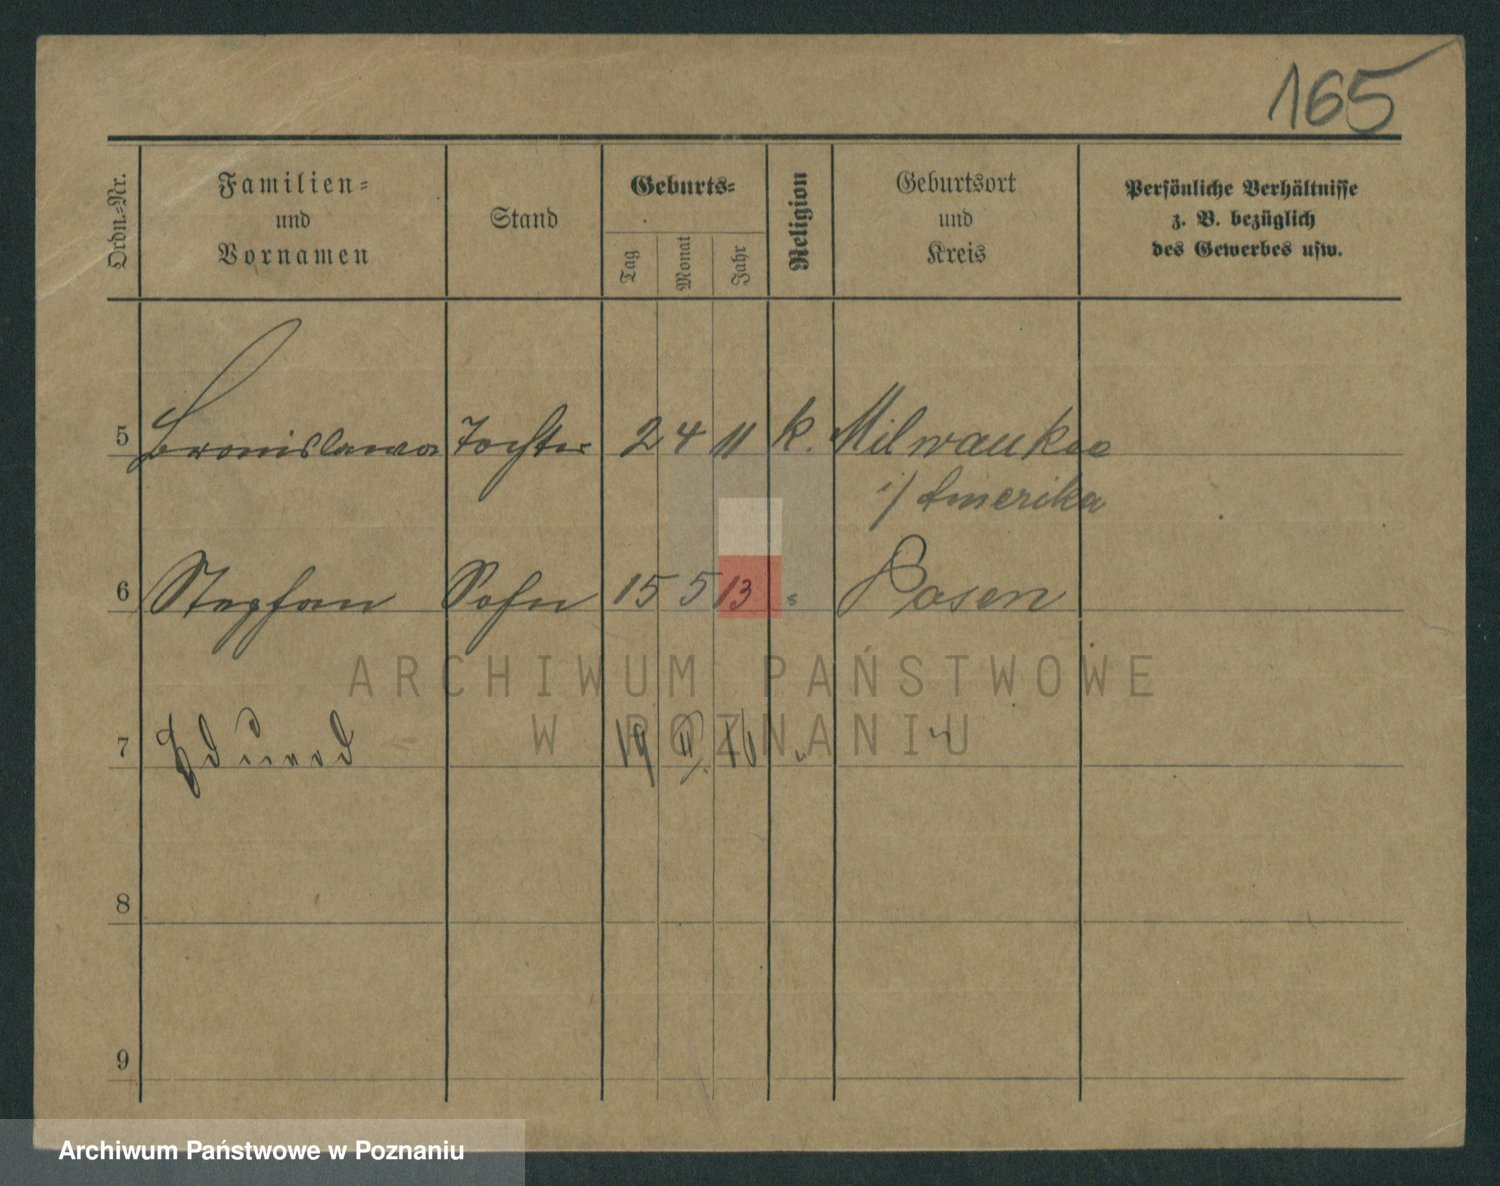 165
Ordn.=Nr. Familien= und Vornamen Stand Geburts= Tag Monat Jahr Religion Geburtsort und Kreis Persönliche Verhältnisse z. B. bezüglich des Gewerbes usw.
5 Bronislawa Tochter 2 4 11 k. Milwaukee
i/ Amerika
6 Stephan Sohn 15 5 13 " Posen
ARCHIWUM PAŃSTWOWE
W POZNANIU
7 Eduard 19 II. 16 " "
8
9
Archiwum Państwowe w Poznaniu